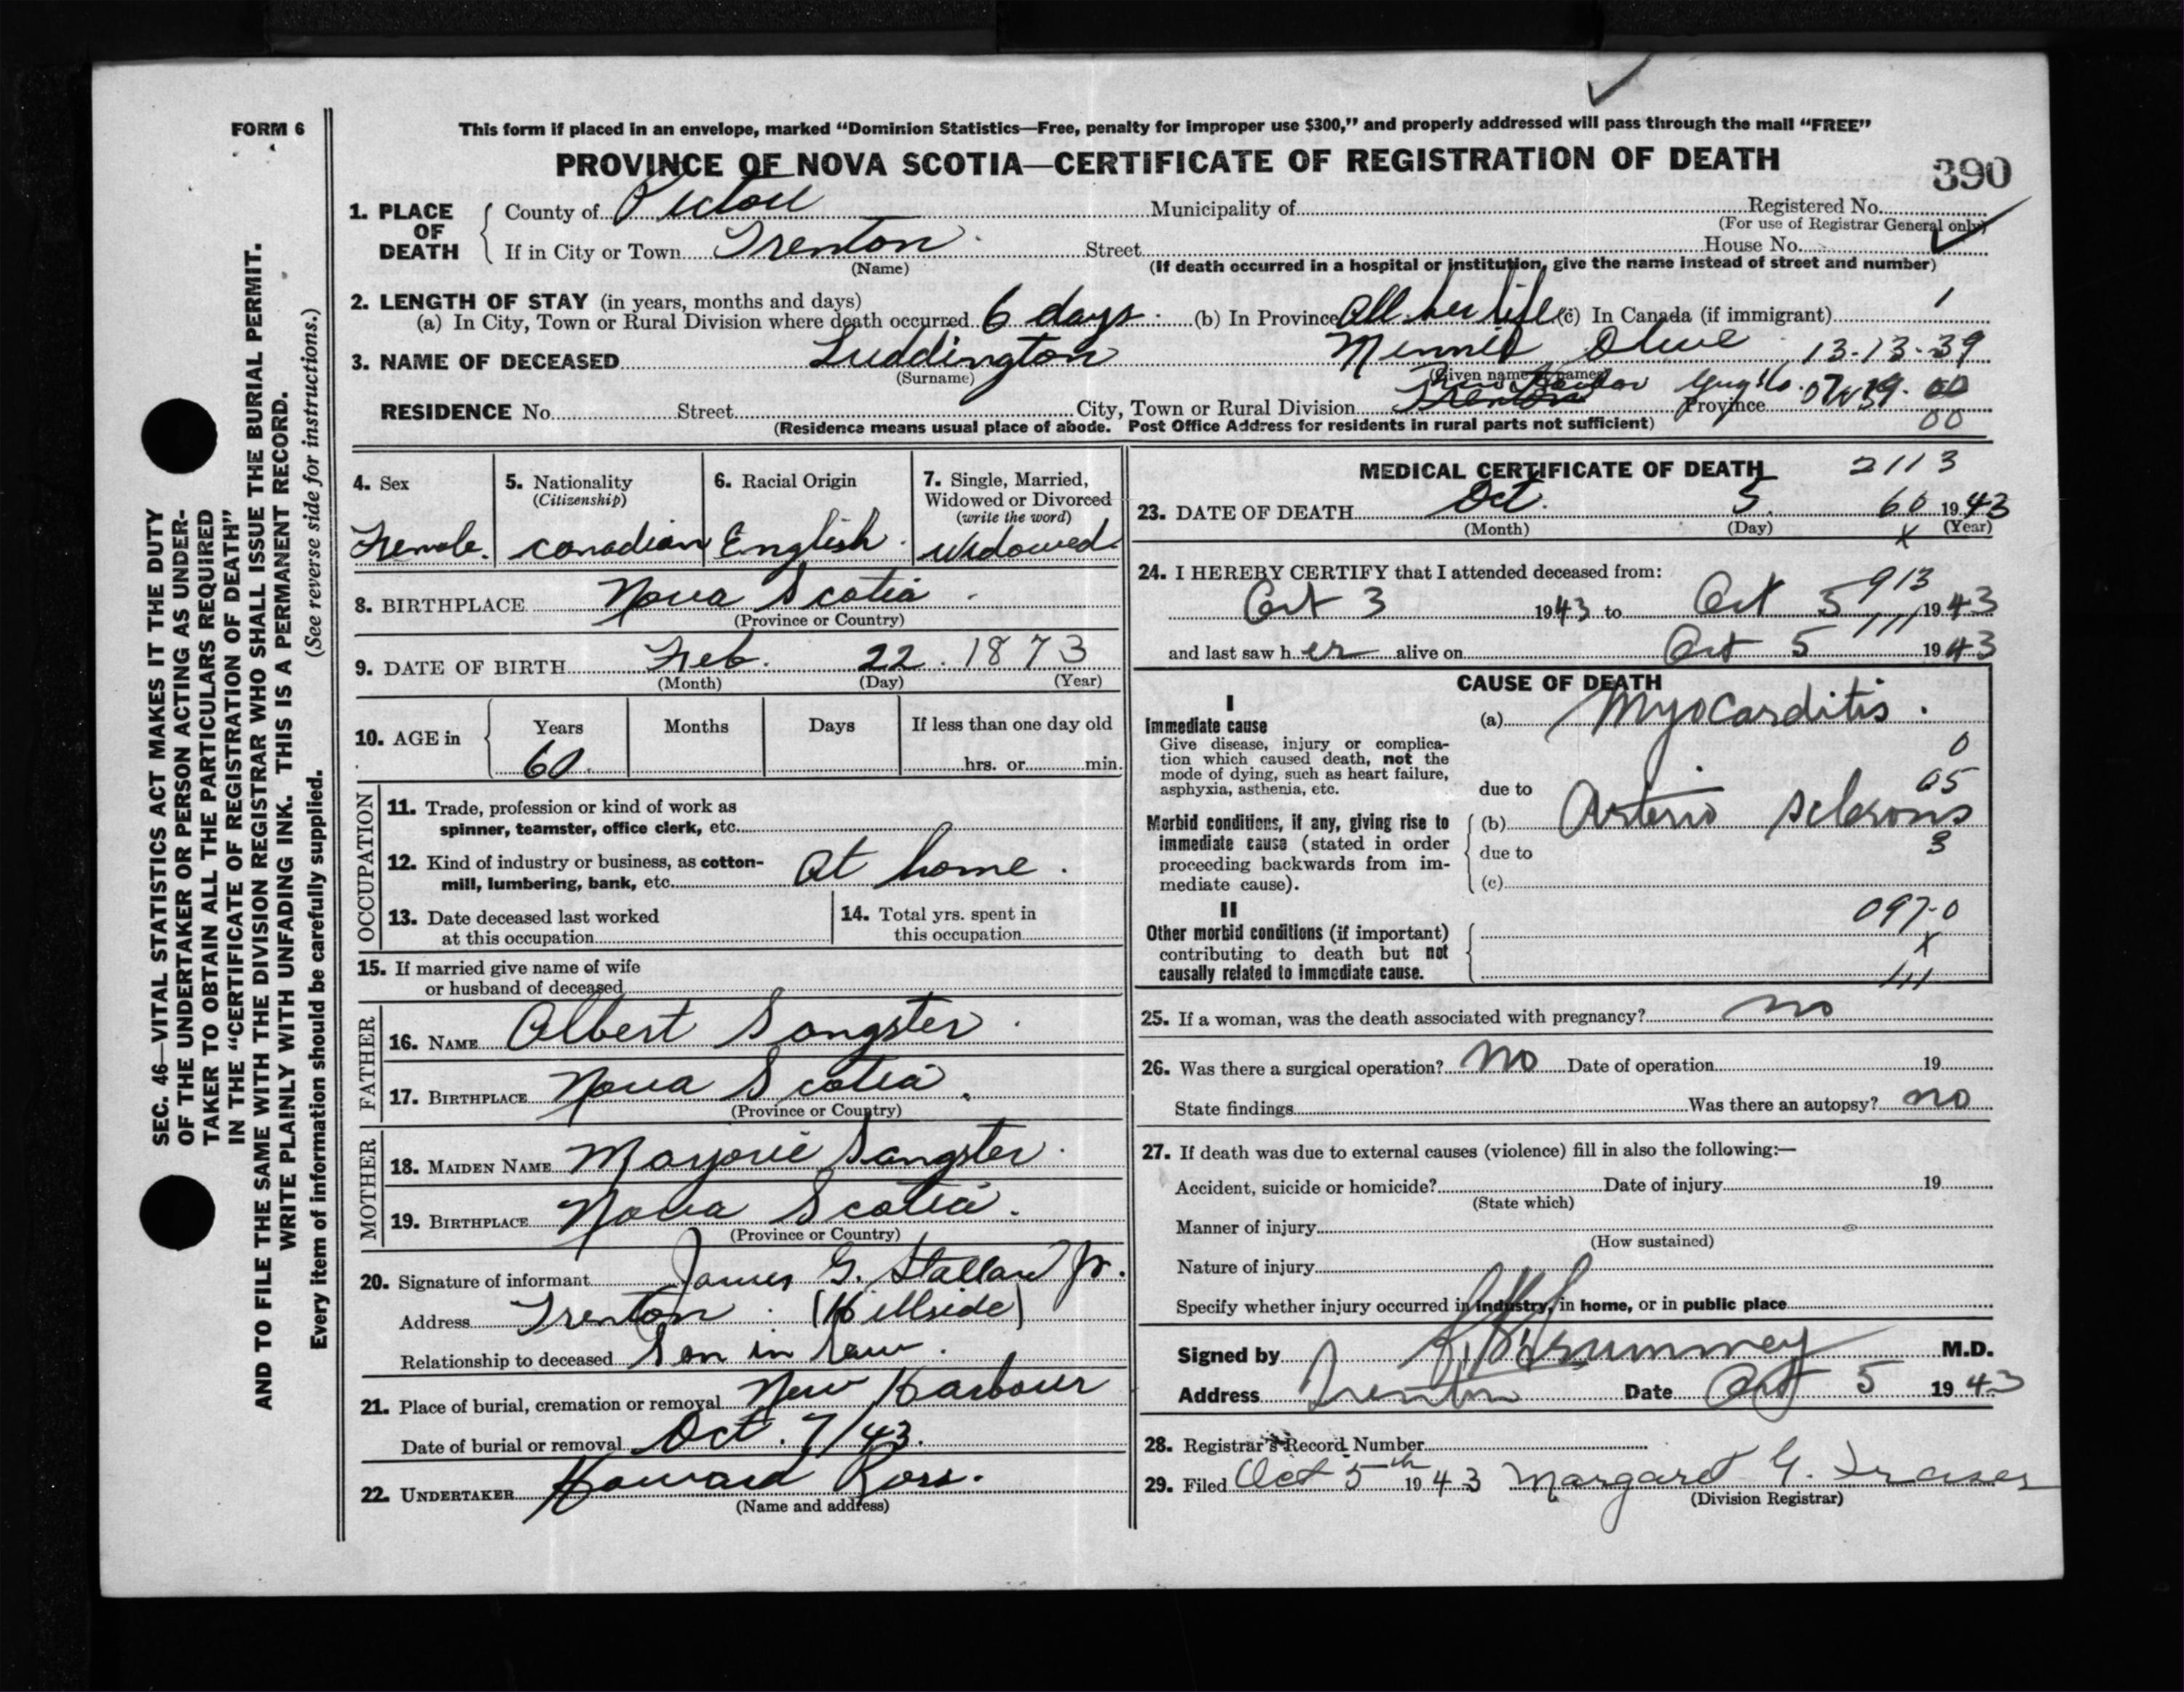 FORM 6
This form if placed in an envelope, marked "Dominion Statistics—Free, penalty for improper use $300," and properly addressed will pass through the mail "FREE"
PROVINCE OF NOVA SCOTIA—CERTIFICATE OF REGISTRATION OF DEATH
390
1. PLACE OF DEATH
County of Pictou Municipality of Registered No.
(For use of Registrar General only)
If in City or Town Trenton Street House No.
(Name) (If death occurred in a hospital or institution, give the name instead of street and number)
2. LENGTH OF STAY (in years, months and days)
(a) In City, Town or Rural Division where death occurred 6 days (b) In Province All her life (c) In Canada (if immigrant) 1
3. NAME OF DECEASED Luddington Minnie Olive 13-13-39
(Surname) (Given name or names)
RESIDENCE No. Street City, Town or Rural Division New Harbor Guy. Co. Trenton Province 00
(Residence means usual place of abode. Post Office Address for residents in rural parts not sufficient) 00
SEC. 46—VITAL STATISTICS ACT MAKES IT THE DUTY
OF THE UNDERTAKER OR PERSON ACTING AS UNDER-
TAKER TO OBTAIN ALL THE PARTICULARS REQUIRED
IN THE "CERTIFICATE OF REGISTRATION OF DEATH"
AND TO FILE THE SAME WITH THE DIVISION REGISTRAR WHO SHALL ISSUE THE BURIAL PERMIT.
WRITE PLAINLY WITH UNFADING INK. THIS IS A PERMANENT RECORD.
Every item of information should be carefully supplied. (See reverse side for instructions.)
4. Sex Female.
5. Nationality (Citizenship) Canadian
6. Racial Origin English
7. Single, Married, Widowed or Divorced (write the word) Widowed
8. BIRTHPLACE Nova Scotia
(Province or Country)
9. DATE OF BIRTH Feb. 22. 1873
(Month) (Day) (Year)
10. AGE in Years 60. Months Days If less than one day old
hrs. or min.
OCCUPATION
11. Trade, profession or kind of work as
spinner, teamster, office clerk, etc.
12. Kind of industry or business, as cotton-
mill, lumbering, bank, etc. At home.
13. Date deceased last worked
at this occupation
14. Total yrs. spent in
this occupation
15. If married give name of wife
or husband of deceased
FATHER
16. NAME Albert Sangster
17. BIRTHPLACE Nova Scotia.
(Province or Country)
MOTHER
18. MAIDEN NAME Marjorie Sangster
19. BIRTHPLACE Nova Scotia.
(Province or Country)
20. Signature of informant James G. Stallard Jr.
Address Trenton (Hillside)
Relationship to deceased Son in law.
21. Place of burial, cremation or removal New Harbour
Date of burial or removal Oct. 7/43.
22. UNDERTAKER Howard Ross.
(Name and address)
MEDICAL CERTIFICATE OF DEATH 2113
23. DATE OF DEATH Oct. 5. 60 1943
(Month) (Day) x (Year)
24. I HEREBY CERTIFY that I attended deceased from: 913
Oct 3 1943 to Oct 5 111 1943
and last saw her alive on Oct 5 1943
CAUSE OF DEATH
I
Immediate cause
Give disease, injury or complica-
tion which caused death, not the
mode of dying, such as heart failure,
asphyxia, asthenia, etc.
(a) Myocarditis.
0
65
due to
Morbid conditions, if any, giving rise to
immediate cause (stated in order
proceeding backwards from im-
mediate cause).
(b) Arterio Sclerosis
3
due to
(c)
II
Other morbid conditions (if important)
contributing to death but not
causally related to immediate cause.
097-0
x
111
25. If a woman, was the death associated with pregnancy? no
26. Was there a surgical operation? No Date of operation 19
State findings Was there an autopsy? no
27. If death was due to external causes (violence) fill in also the following:—
Accident, suicide or homicide? Date of injury 19
(State which)
Manner of injury
(How sustained)
Nature of injury
Specify whether injury occurred in industry, in home, or in public place
Signed by Drummey M.D.
Address Trenton Date Oct 5 1943
28. Registrar's Record Number
29. Filed Oct 5th 1943 Margaret G. Fraser
(Division Registrar)